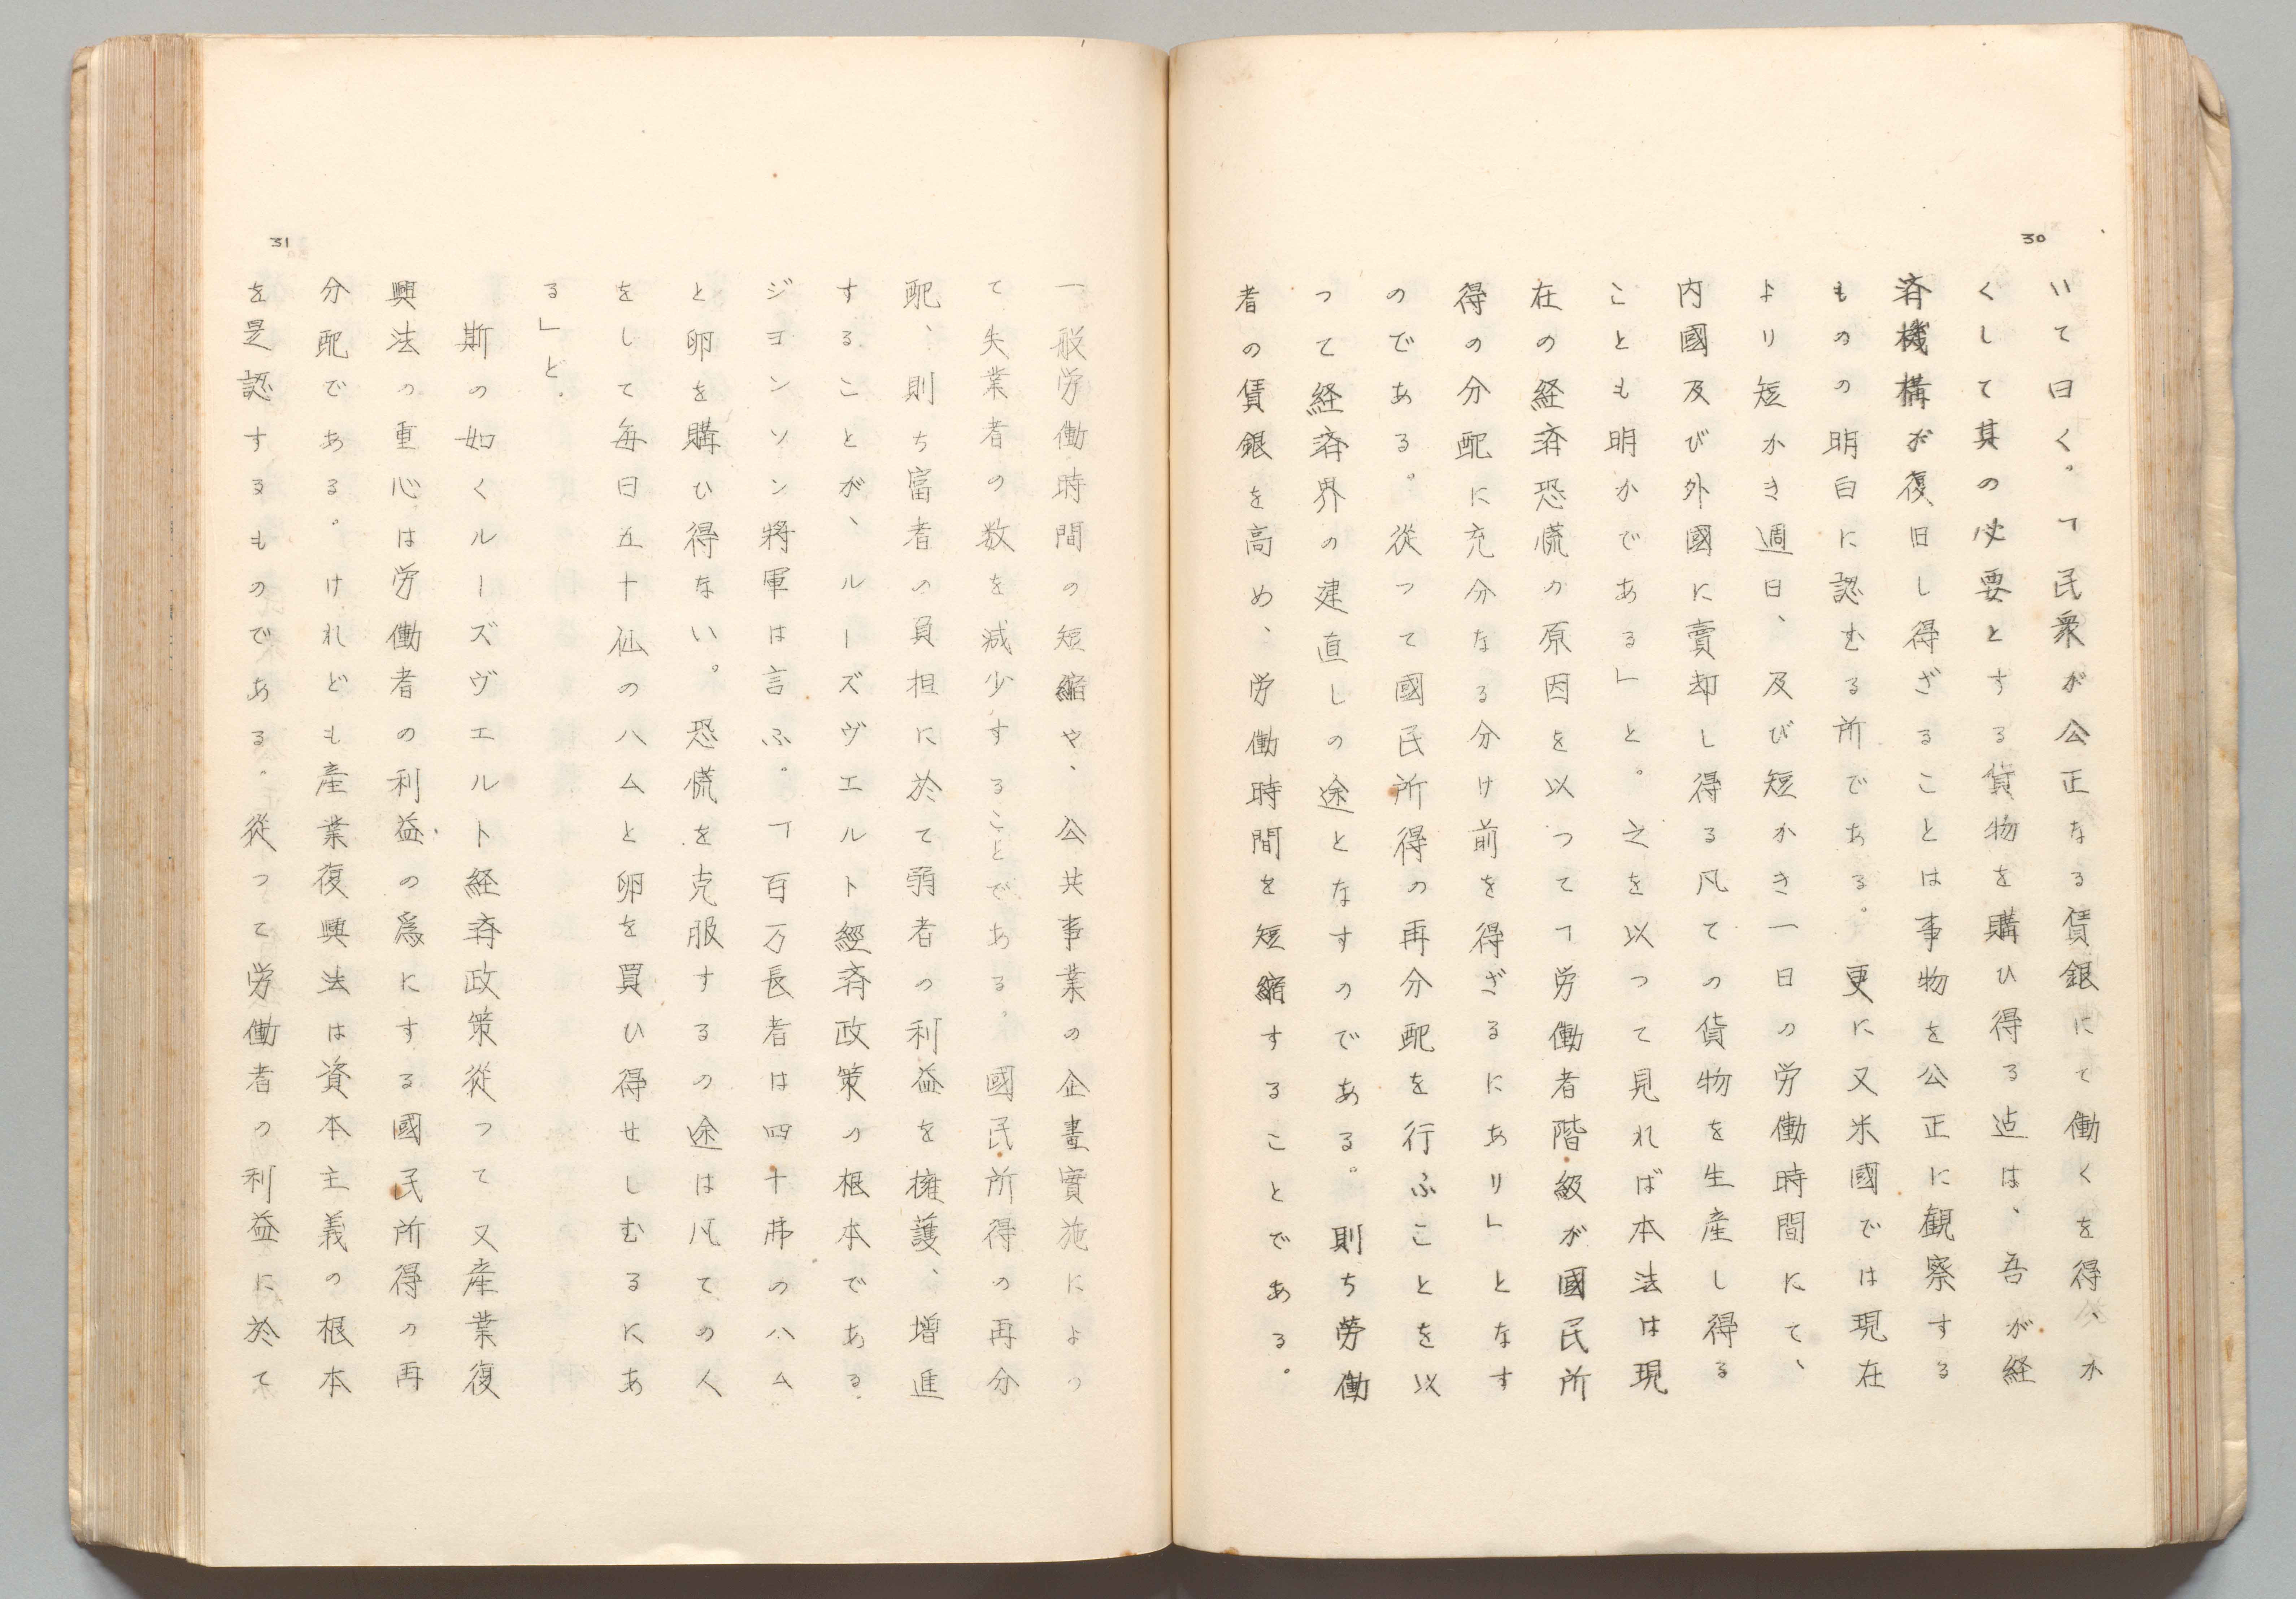 30
いて曰く。「民衆が公正なる賃銀にて働くを得、か
くして其の必要とする貨物を購ひ得る迠は、吾が経
済機構が復旧し得ざることは事物を公正に観察する
ものの明白に認むる所である。更に又米國では現在
より短かき週日、及び短かき一日の労働時間にて、
内國及び外國に賣却し得る凡ての貨物を生産し得る
ことも明かである」と。之を以つて見れば本法は現
在の経済恐慌の原因を以つて「労働者階級が國民所
得の分配に充分なる分け前を得ざるにあり」となす
のである。從つて國民所得の再分配を行ふことを以
つて経済界の建直しの途となすのである。則ち勞働
者の賃銀を高め、労働時間を短縮することである。
31
一般労働時間の短縮や、公共事業の企畫實施によつ
て失業者の数を減少することである。國民所得の再分
配、則ち富者の負担に於て弱者の利益を擁護、増進
することが、ルーズヴエルト經済政策の根本である。
ジヨンソン將軍は言ふ。「百万長者は四十弗のハム
と卵を購ひ得ない。恐慌を克服するの途は凡ての人
をして毎日五十仙のハムと卵を買ひ得せしむるにあ
る」と。
斯の如くルーズヴエルト経済政策従つて又産業復
興法の重心は労働者の利益の爲にする國民所得の再
分配である。けれども産業復興法は資本主義の根本
を是認するものである。從つて労働者の利益に於て